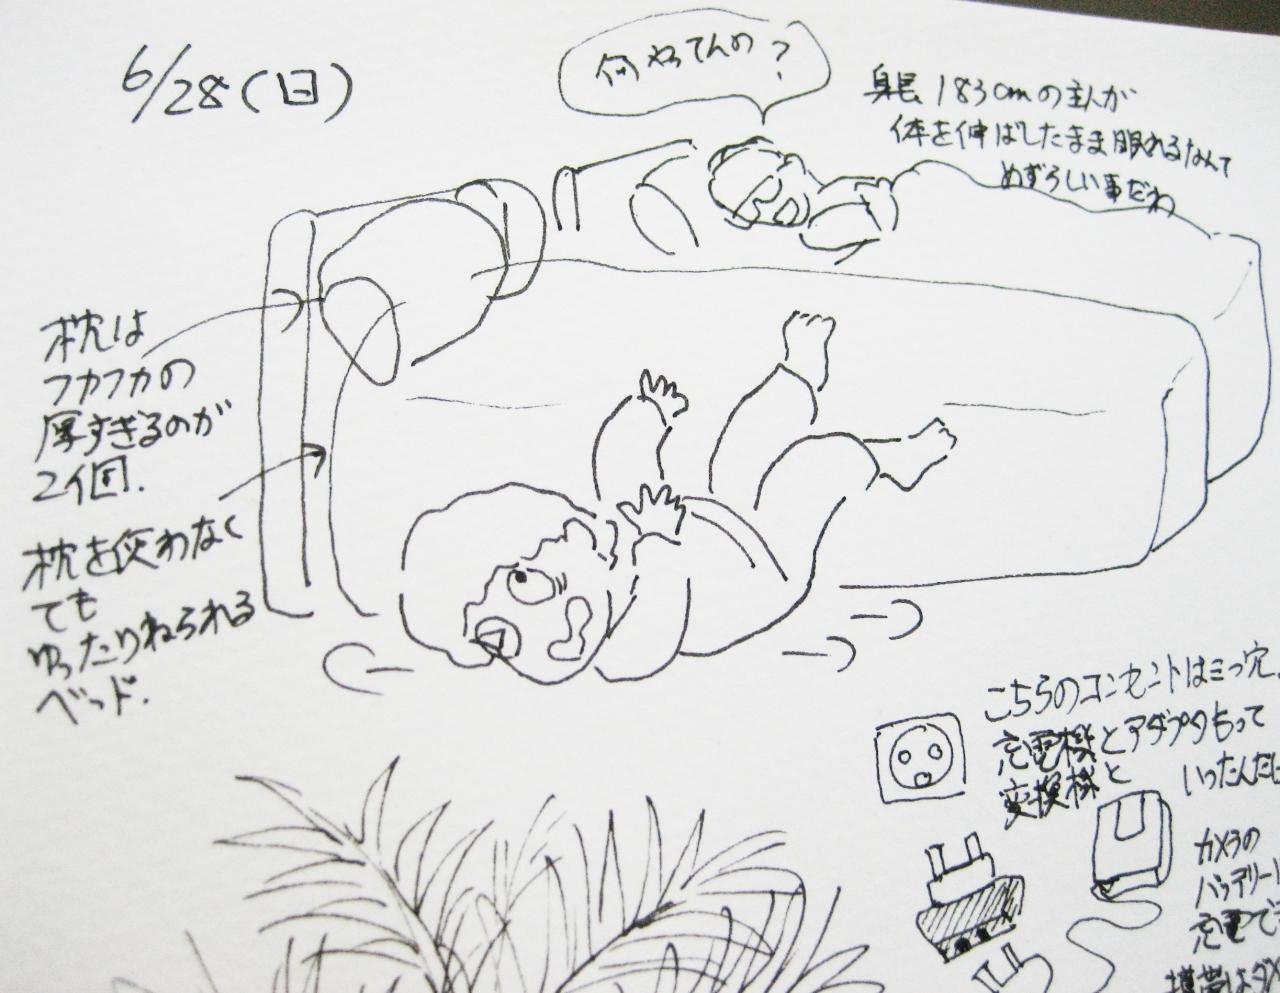 6/28(日)
何やってんの?
身長183cmの主人が
体を伸ばしたまま眠れるなんて
めずらしい事だわ
枕は
フカフカの
厚すぎるのが
2個.
枕を使わなく
ても
ゆったりねられる
ベッド.
こちらのコンセントは三つ穴.
充電機とアダプタもって
変換機と
いったんだけ
カメラの
バッテリー
充電で
携帯はダメ